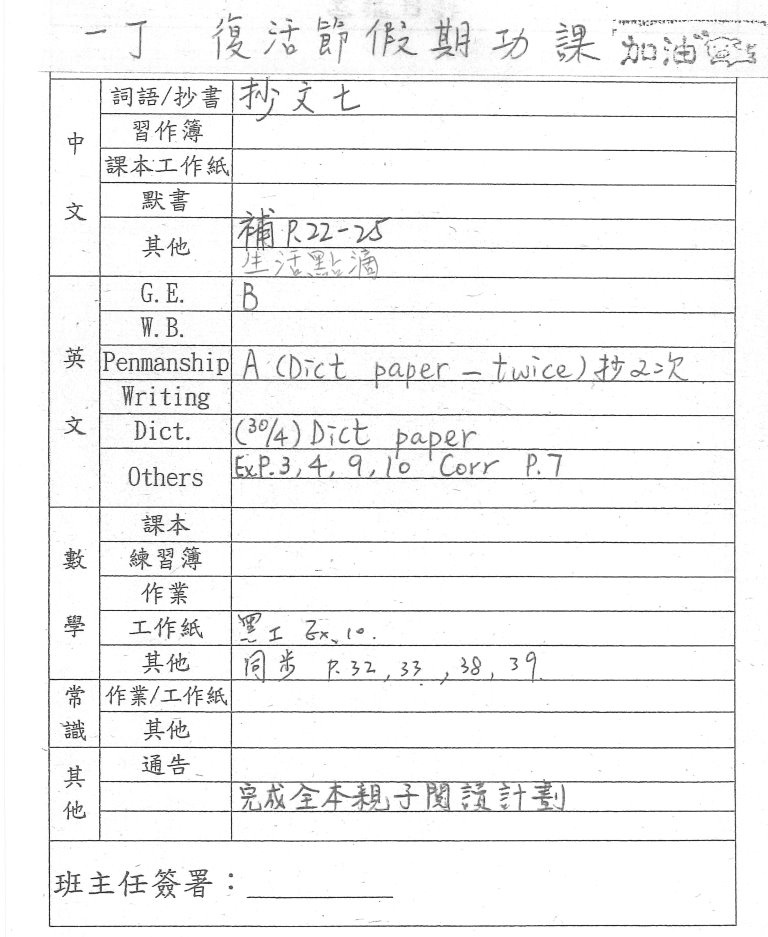 一丁 復活節假期功課 加油
中文
詞語/抄書 抄文七
習作簿
課本工作紙
默書
其他 補 P.22-25
生活點滴
英文
G.E. B
W.B.
Penmanship A (Dict paper - twice) 抄2次
Writing
Dict. (30/4) Dict paper
Others Ex P.3, 4, 9, 10 Corr P.7
數學
課本
練習簿
作業
工作紙 黑工 Ex. 10.
其他 同步 P.32, 33, 38, 39
常識
作業/工作紙
其他
其他
通告
完成全本親子閱讀計劃
班主任簽署：